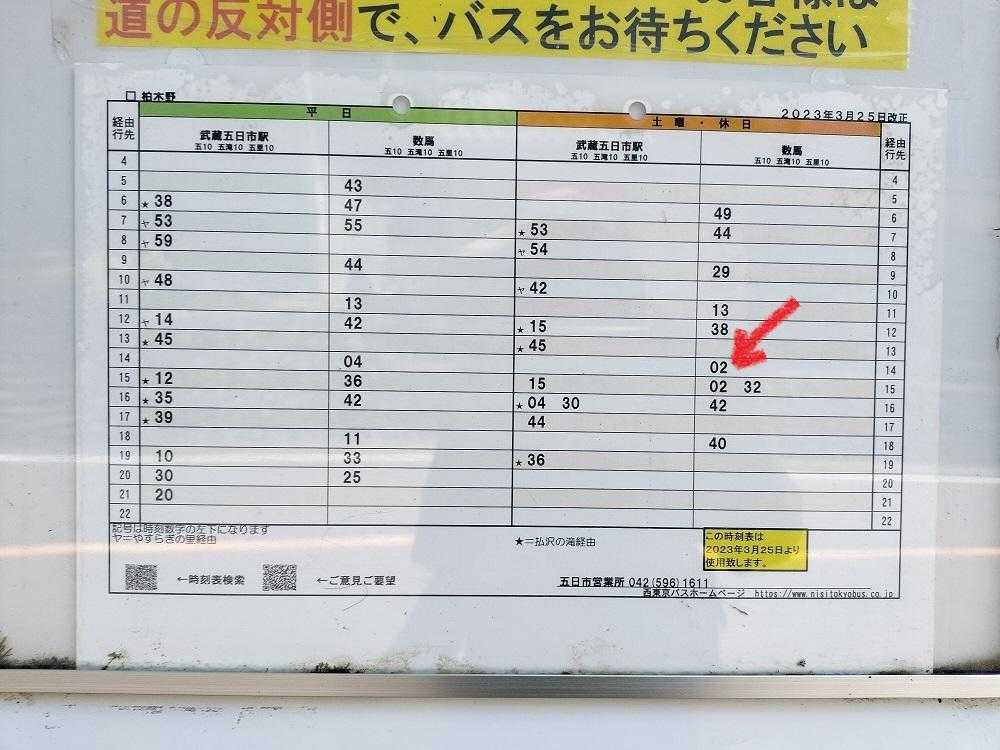 道の反対側で、バスをお待ちください
□ 柏木野
平 日 土 曜 ・ 休 日 2023年3月25日改正
経由 行先 武蔵五日市駅 数馬 武蔵五日市駅 数馬 経由 行先
五10 五滝10 五里10 五10 五滝10 五里10 五10 五滝10 五里10 五10 五滝10 五里10
4 4
5 43 5
6 ★38 47 49 6
7 ヤ53 55 ★53 44 7
8 ヤ59 ヤ54 8
9 44 29 9
10 ヤ48 ヤ42 10
11 13 13 11
12 ヤ14 42 ★15 38 12
13 ★45 ★45 13
14 04 02 14
15 ★12 36 15 02 32 15
16 ★35 42 ★04 30 42 16
17 ★39 44 17
18 11 40 18
19 10 33 ★36 19
20 30 25 20
21 20 21
22 22
記号は時刻数字の左下になります
ヤ=やすらぎの里経由 ★=払沢の滝経由
この時刻表は
2023年3月25日より
使用致します。
←時刻表検索 ←ご意見ご要望
五日市営業所 042(596)1611
西東京バスホームページ https://www.nisitokyobus.co.jp